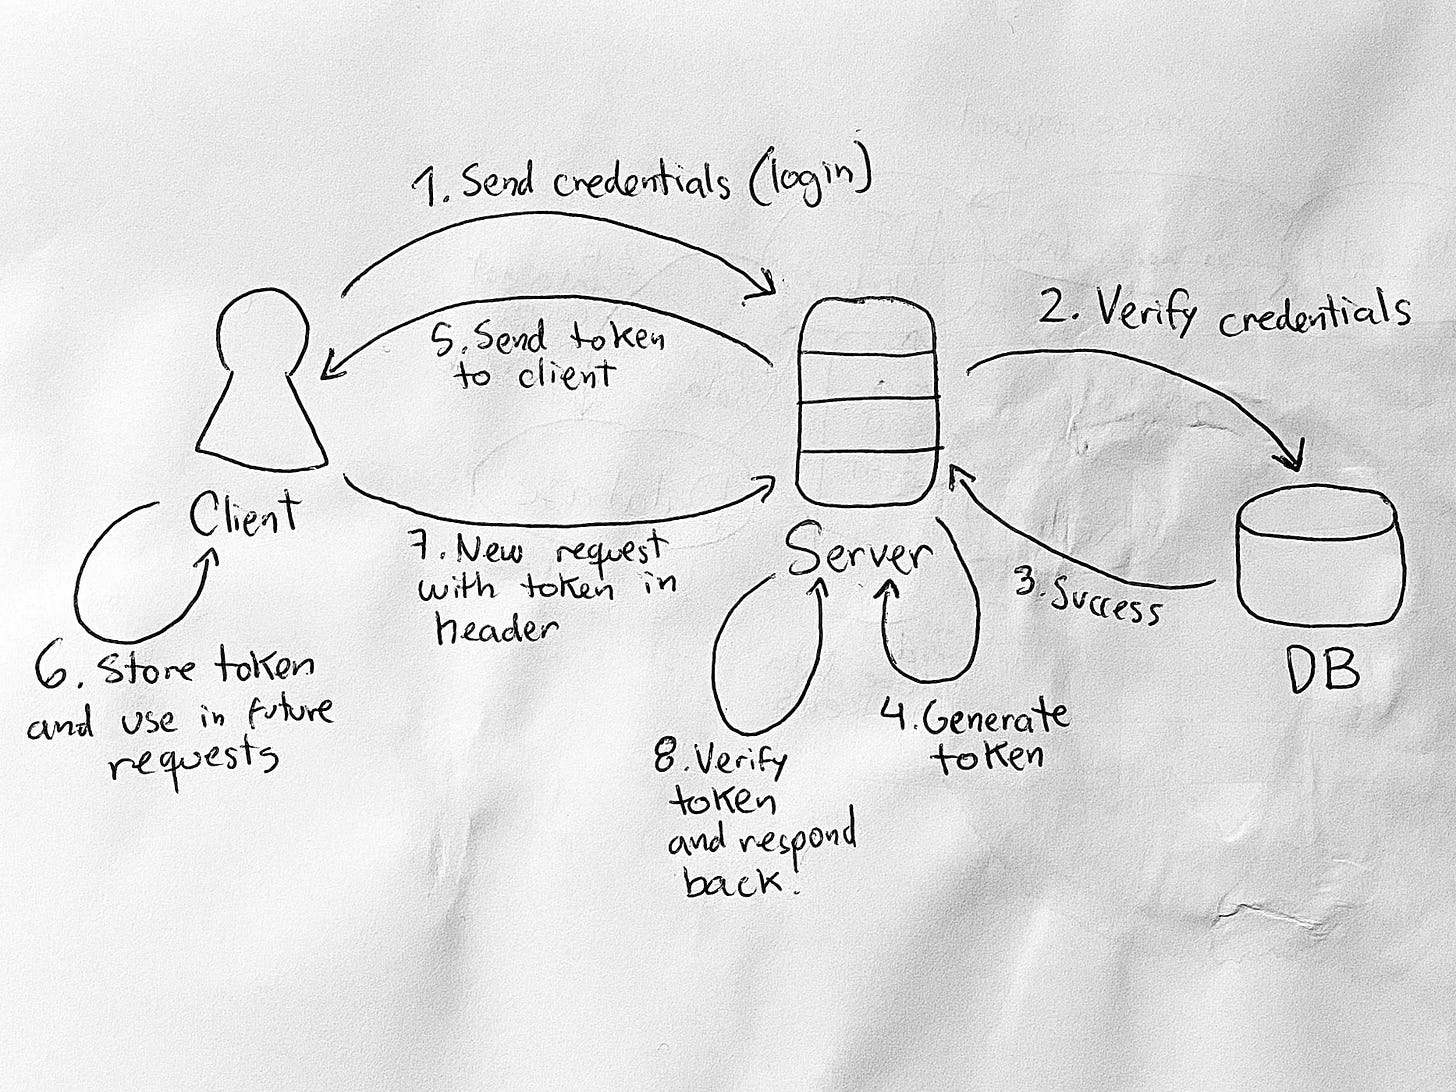 1. Send credentials (login)
5. Send token
to client
2. Verify credentials
Client
7. New request
with token in
header
Server
3. Success
DB
6. Store token
and use in future
requests
4. Generate
token
8. Verify
token
and respond
back!